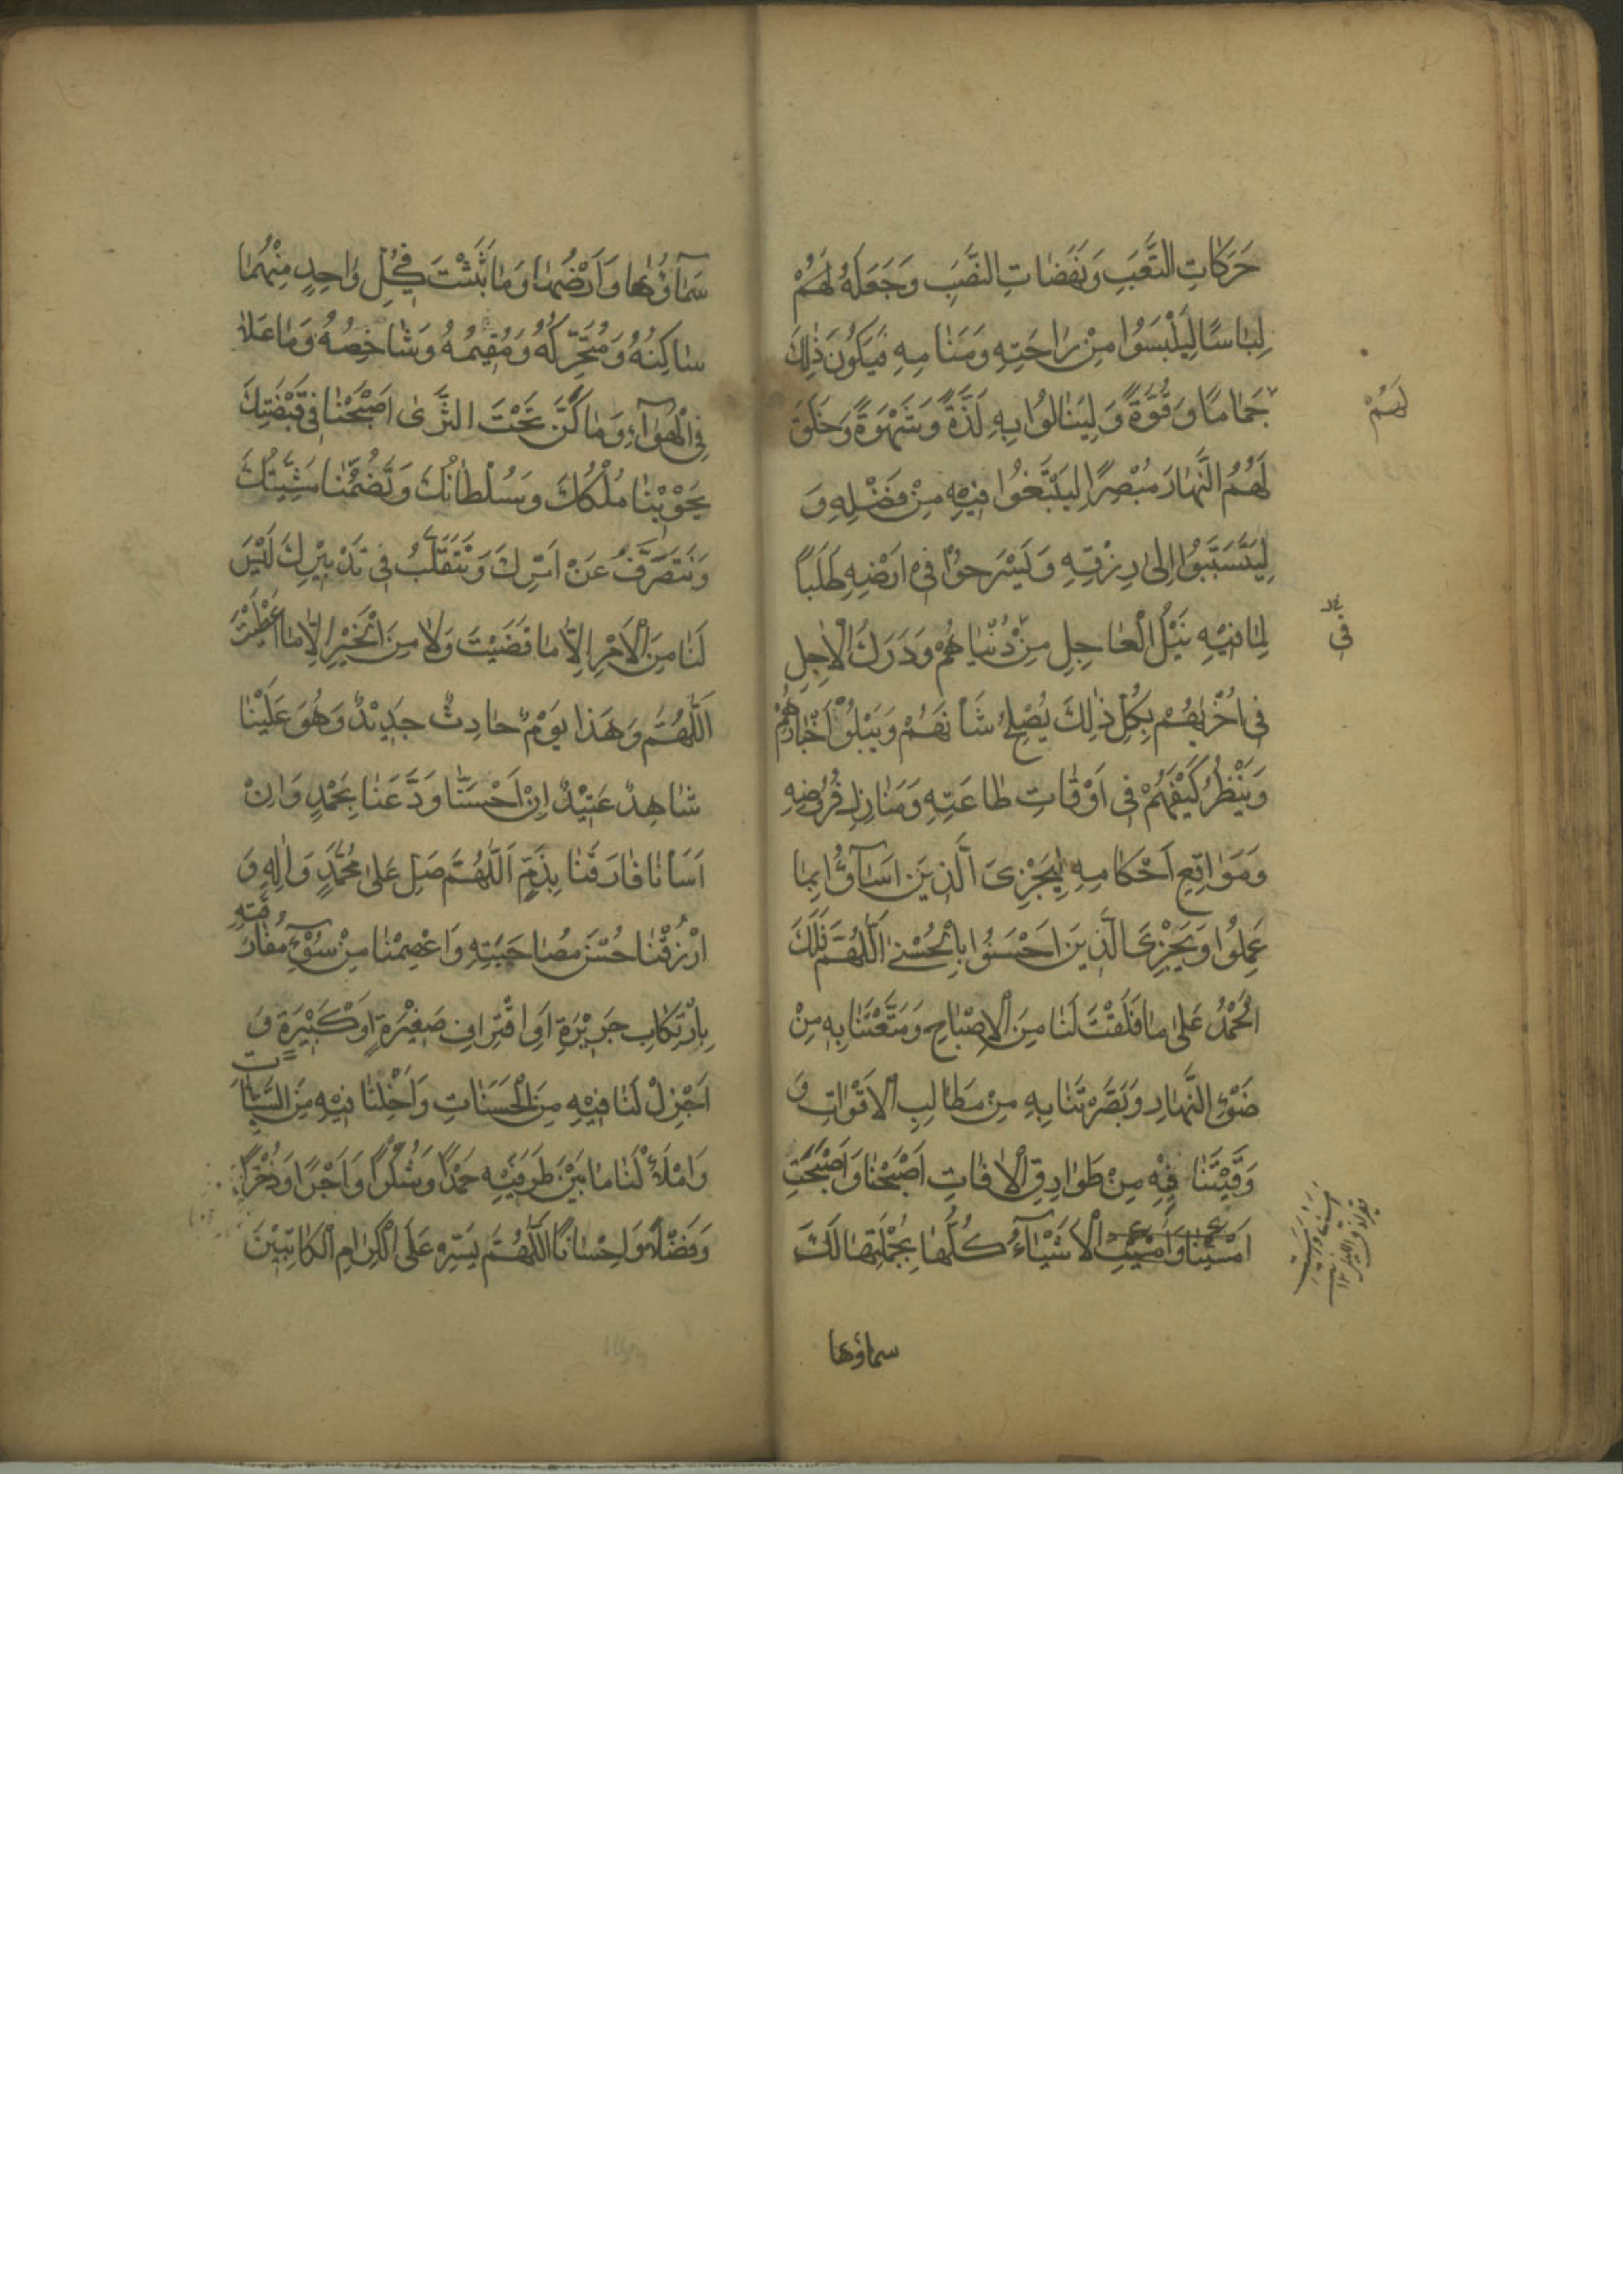 حَرَكَاتِ التَّعَبِ وَنَهَضَاتِ النَّصَبِ وَجَعَلَهُ لَهُمْ
لِبَاسًا لِيَلْبَسُوا مِنْ رَاحَتِهِ وَمَنَامِهِ فَيَكُونَ ذٰلِكَ
جَمَامًا وَقُوَّةً وَلِيَنَالُوا بِهِ لَذَّةً وَشَهْوَةً وَخَلَقَ
لَهُمْ
لَهُمُ النَّهَارَ مُبْصِرًا لِيَبْتَغُوا فِيْهِ مِنْ فَضْلِهِ وَ
لِيَتَسَبَّبُوا إِلىٰ رِزْقِهِ وَيَسْرَحُوْا فِيْ اَرْضِهِ طَلَبًا
لِمَا فِيْهِ نَيْلُ الْعَاجِلِ مِنْ دُنْيَاهُمْ وَدَرَكُ الْاٰجِلِ
فِي
فِي اُخْرٰيهُمْ بِكُلِّ ذٰلِكَ يُصْلِحُ شَأْنَهُمْ وَيَبْلُوْ اَخْبَارَهُمْ
وَيَنْظُرُ كَيْفَهُمْ فِي اَوْقَاتِ طَاعَتِهِ وَمَنَازِلِ فُرُوضِهِ
وَمَوَاقِعِ اَحْكَامِهِ لِيَجْزِيَ الَّذِيْنَ اَسَآؤُا بِمَا
عَمِلُوْا وَيَجْزِيَ الَّذِيْنَ اَحْسَنُوْا بِالْحُسْنٰى اَللّٰهُمَّ فَلَكَ
الْحَمْدُ عَلىٰ مَا فَلَقْتَ لَنَا مِنَ الْاِصْبَاحِ وَمَتَّعْتَنَا بِهِ مِنْ
ضَوْءِ النَّهَارِ وَبَصَّرْتَنَا بِهِ مِنْ مَطَالِبِ الْاَقْوَاتِ وَ
وَقَيْتَنَا فِيْهِ مِنْ طَوَارِقِ الْاٰفَاتِ اَصْبَحْنَا وَاَصْبَحَتِ
اَمْسَيْنَا وَاَمْسَيَتِ الْاَشْيَآءُ كُلُّهَا بِجُمْلَتِهَا لَكَ
سماؤها
سَمَآؤُهَا وَاَرْضُهَا وَمَا بَثَثْتَ فِي كُلِّ وَاحِدٍ مِنْهُمَا
سَاكِنُهُ وَمُتَحَرِّكُهُ وَمُقِيْمُهُ وَشَاخِصُهُ وَمَا عَلَا
فِي الْهَوَآءِ وَمَا كَنَّ تَحْتَ الثَّرٰى اَصْبَحْنَا فِي قَبْضَتِكَ
يَحْوِيْنَا مُلْكُكَ وَسُلْطَانُكَ وَتَضُمُّنَا مَشِيَّتُكَ
وَنَتَصَرَّفُ عَنْ اَمْرِكَ وَنَتَقَلَّبُ فِي تَدْبِيْرِكَ لَيْسَ
لَنَا مِنَ الْاَمْرِ اِلَّا مَا قَضَيْتَ وَلَا مِنَ الْخَيْرِ اِلَّا مَا اَعْطَيْتَ
اَللّٰهُمَّ وَهَذَا يَوْمٌ حَادِثٌ جَدِيْدٌ وَهُوَ عَلَيْنَا
شَاهِدٌ عَتِيْدٌ اِنْ اَحْسَنَّا وَدَّعَنَا بِحَمْدٍ وَاِنْ
اَسَأْنَا فَارَقَنَا بِذَمٍّ اَللّٰهُمَّ صَلِّ عَلىٰ مُحَمَّدٍ وَاٰلِهِ وَ
ارْزُقْنَا حُسْنَ مُصَاحَبَتِهِ وَاعْصِمْنَا مِنْ سُوْٓءِ مُفَارَقَتِهِ
بِارْتِكَابِ جَرِيْرَةٍ اَوِ اقْتِرَافِ صَغِيْرَةٍ اَوْ كَبِيْرَةٍ وَ
اَجْزِلْ لَنَا فِيْهِ مِنَ الْحَسَنَاتِ وَاَخْلِنَا فِيْهِ مِنَ السَّيِّاٰتِ
وَامْلَأْ لَنَا مَا بَيْنَ طَرَفَيْهِ حَمْدًا وَشُكْرًا وَاَجْرًا وَذُخْرًا
وَفَضْلًا وَاِحْسَانًا اَللّٰهُمَّ يَسِّرْ عَلَى الْكِرَامِ الْكَاتِبِيْنَ